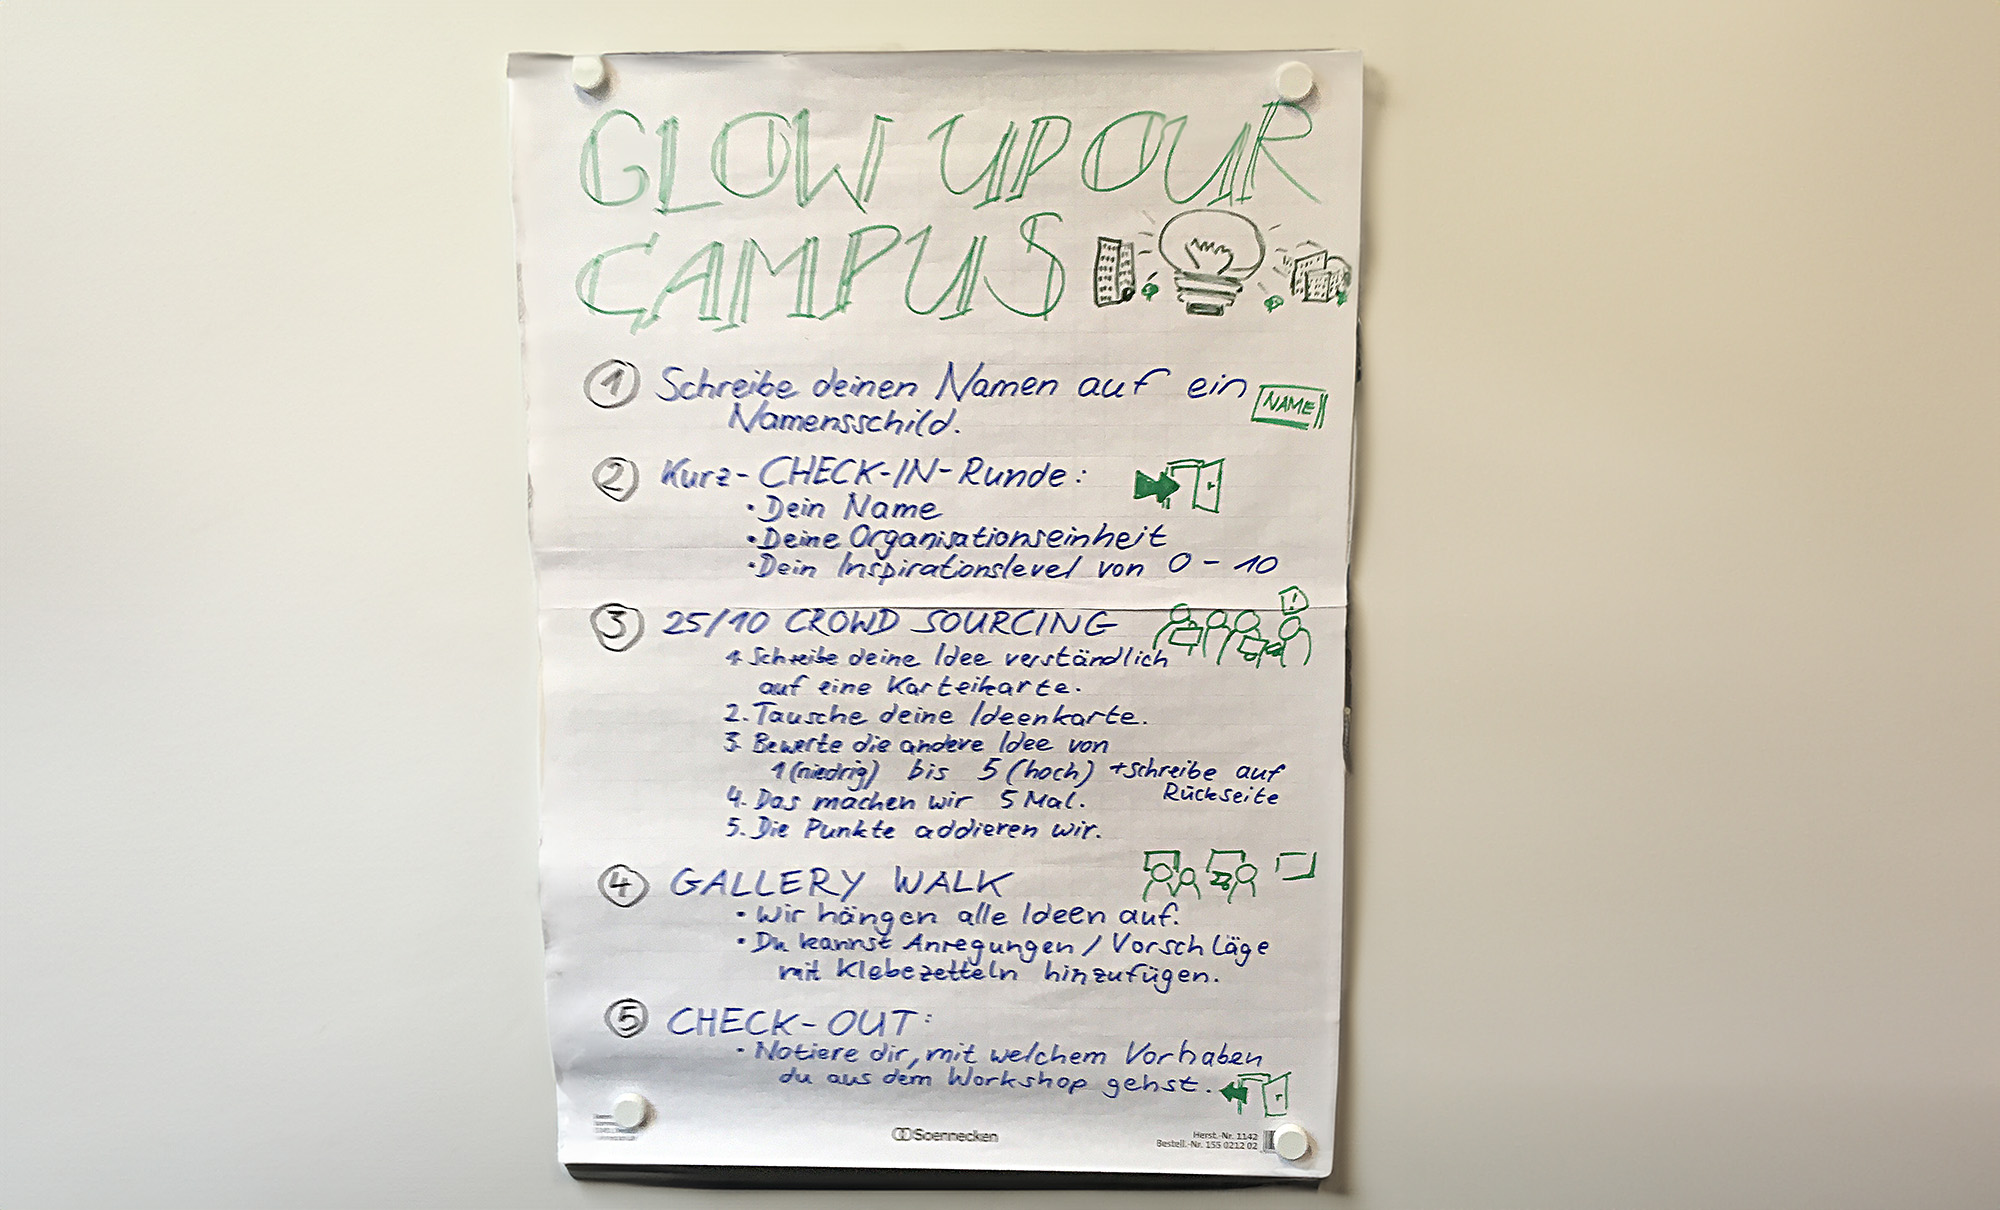 GLOW UP OUR
CAMPUS
1 Schreibe deinen Namen auf ein
Namensschild.
NAME
2 Kurz-CHECK-IN-Runde:
• Dein Name
• Deine Organisationseinheit
• Dein Inspirationslevel von 0 - 10
3 25/10 CROWD SOURCING
!
1. Schreibe deine Idee verständlich
auf eine Karteikarte.
2. Tausche deine Ideenkarte.
3. Bewerte die andere Idee von
1 (niedrig) bis 5 (hoch) + schreibe auf
Rückseite
4. Das machen wir 5 Mal.
5. Die Punkte addieren wir.
4 GALLERY WALK
• Wir hängen alle Ideen auf.
• Du kannst Anregungen / Vorschläge
mit Klebezetteln hinzufügen.
5 CHECK-OUT:
• Notiere dir, mit welchem Vorhaben
du aus dem Workshop gehst.
Soennecken
Herst.-Nr. 1142
Bestell.-Nr. 155 0212 02